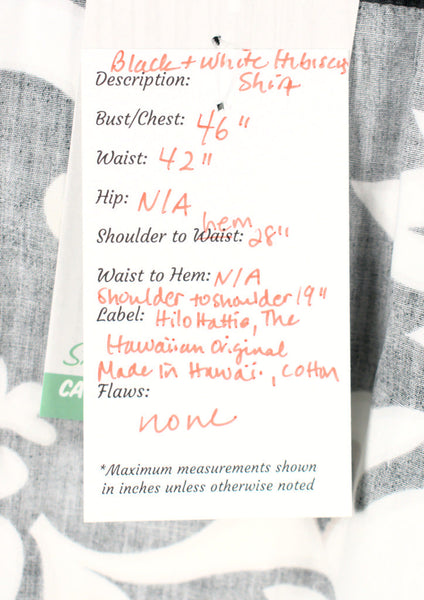 Black + White Hibiscus
Description: Shirt
Bust/Chest: 46"
Waist: 42"
Hip: N/A
hem
Shoulder to Waist: 28"
Waist to Hem: N/A
Shoulder to shoulder 19"
Label: Hilo Hattie, The
Hawaiian Original
Made in Hawaii, Cotton
Flaws:
none
*Maximum measurements shown
in inches unless otherwise noted
CA